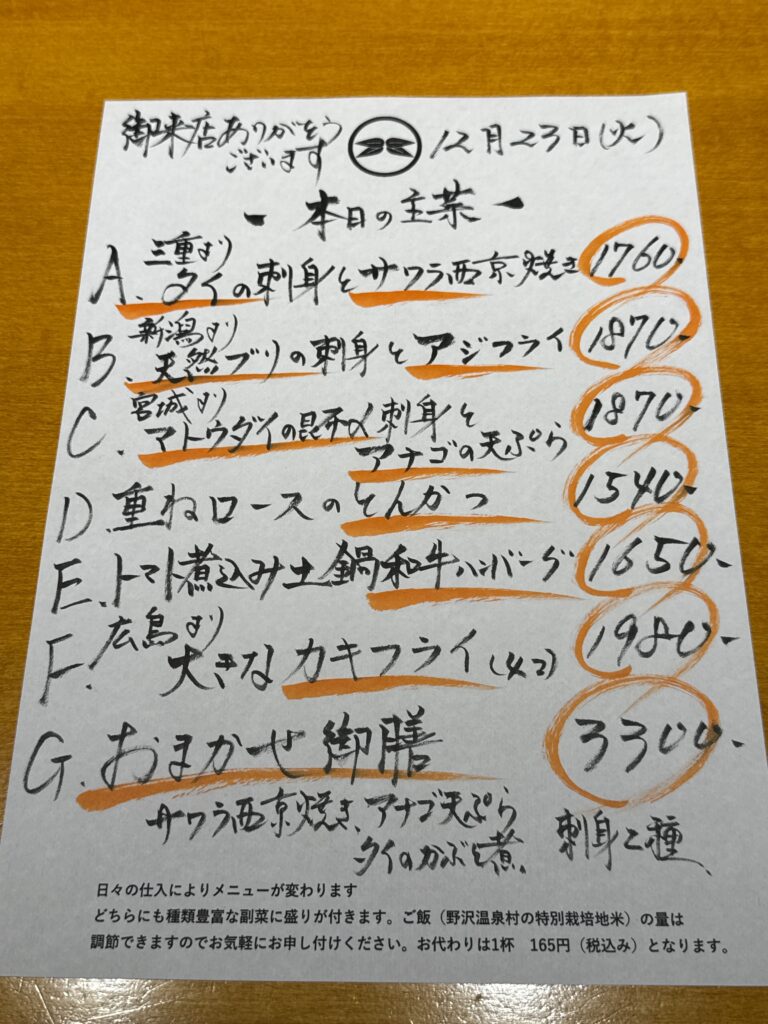 御来店ありがとう
ございます
12月23日(火)
ー 本日の主菜 ー
三重より
A. タイの刺身とサワラ西京焼き 1760-
新潟より
B. 天然ブリの刺身とアジフライ 1870-
宮城より
C. マトウダイの昆布〆刺身と 1870-
アナゴの天ぷら
D. 重ねロースのとんかつ 1540-
E. トマト煮込み土鍋和牛ハンバーグ 1650-
広島より
F. 大きなカキフライ(4コ) 1980-
G. おまかせ御膳 3300-
サワラ西京焼き、アナゴ天ぷら
タイのかぶと煮、刺身二種
日々の仕入によりメニューが変わります
どちらにも種類豊富な副菜に盛りが付きます。ご飯(野沢温泉村の特別栽培地米)の量は
調節できますのでお気軽にお申し付けください。お代わりは1杯 165円(税込み)となります。